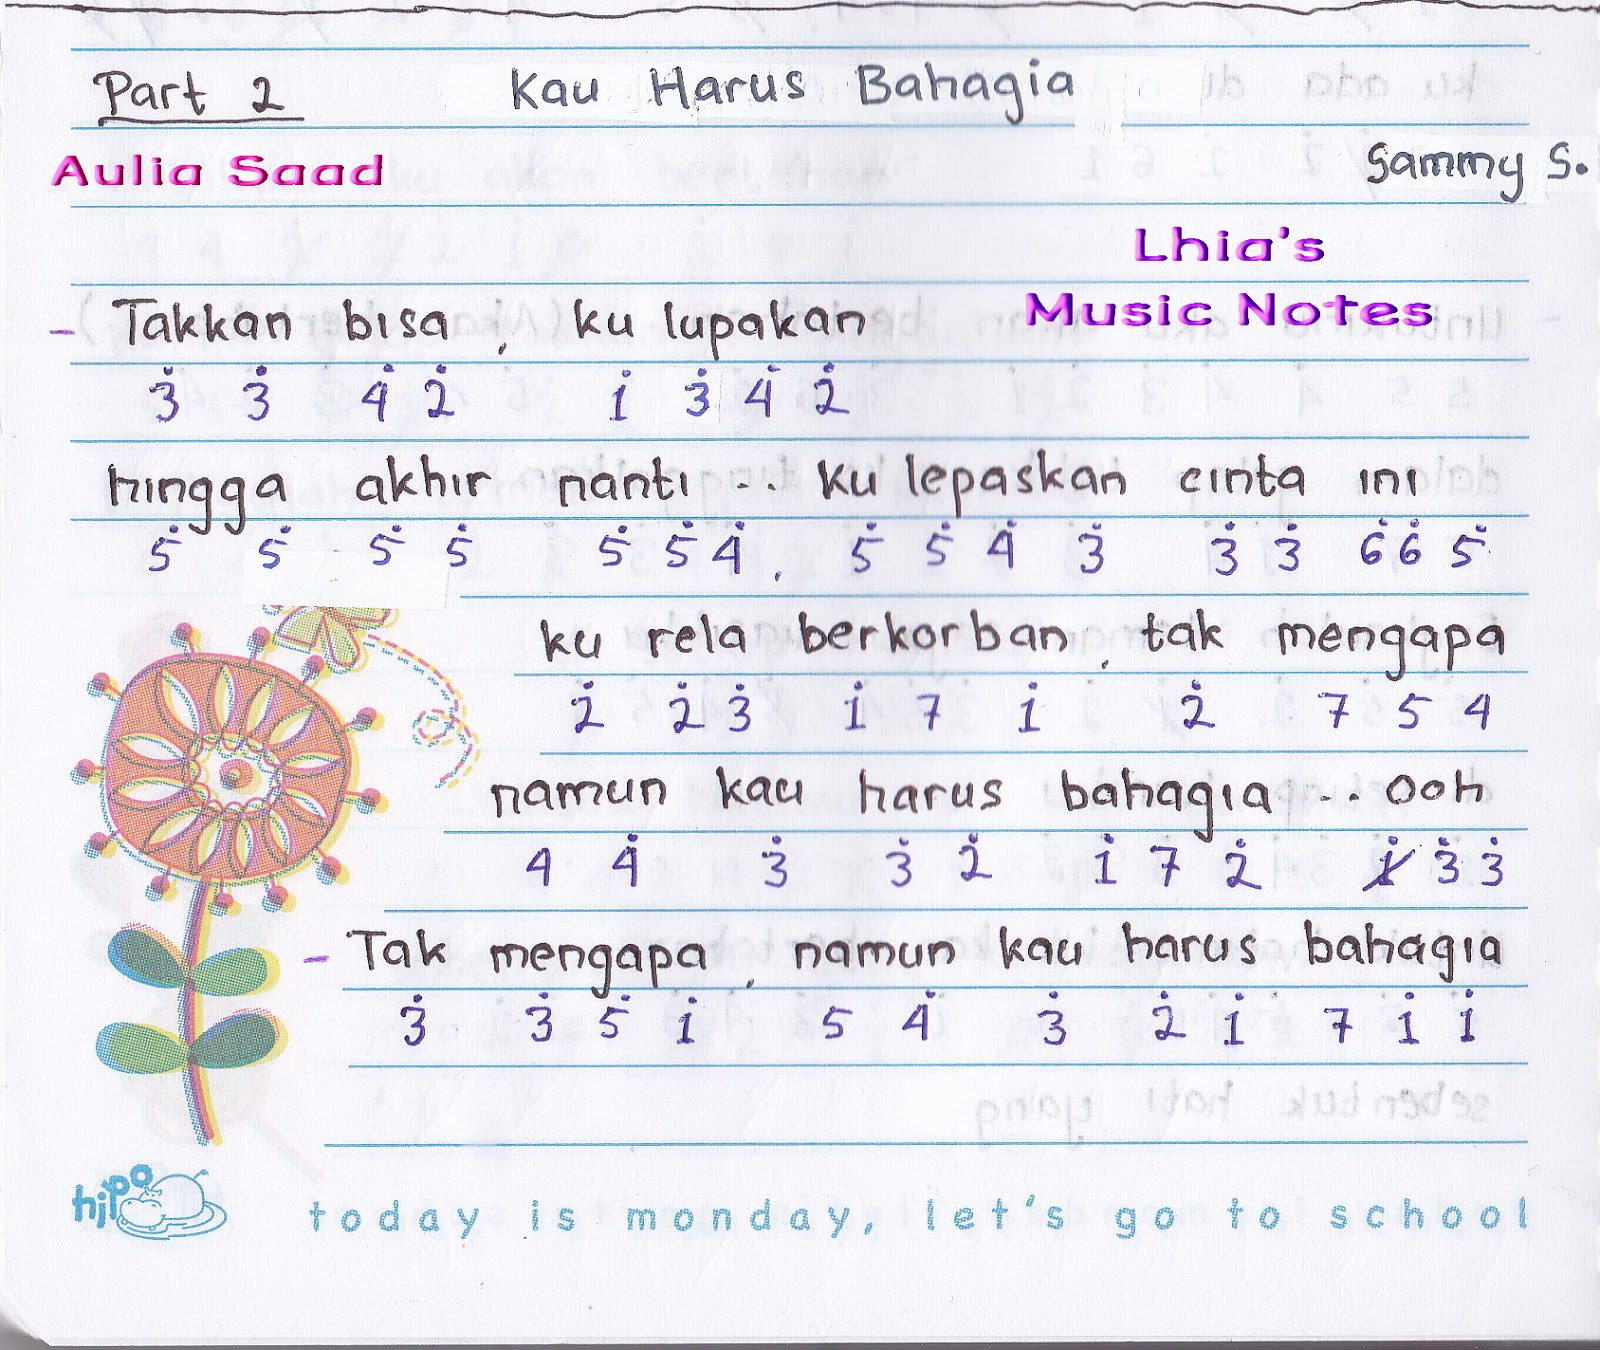 Part 2 Kau Harus Bahagia
Aulia Saad
Sammy S.
Lhia's
Music Notes
- Takkan bisa, ku lupakan
3̇ 3̇ 4̇ 2̇ 1̇ 3̇ 4̇ 2̇
hingga akhir nanti .. ku lepaskan cinta ini
5̇ 5̇ 5̇ 5̇ 5̇ 5̇ 4̇ , 5̇ 5̇ 4̇ 3̇ 3̇ 3̇ 6̇ 6̇ 5̇
ku rela berkorban, tak mengapa
2̇ 2̇ 3̇ 1̇ 7 1̇ 2̇ 7 5 4
namun kau harus bahagia .. ooh
4 4̇ 3̇ 3̇ 2̇ 1̇ 7 2̇ 1̇ 3̇ 3̇
- Tak mengapa, namun kau harus bahagia
3̇ 3̇ 5̇ 1̇ 5 4̇ 3̇ 2̇ 1̇ 7 1̇ 1̇
hipo today is monday, let's go to school